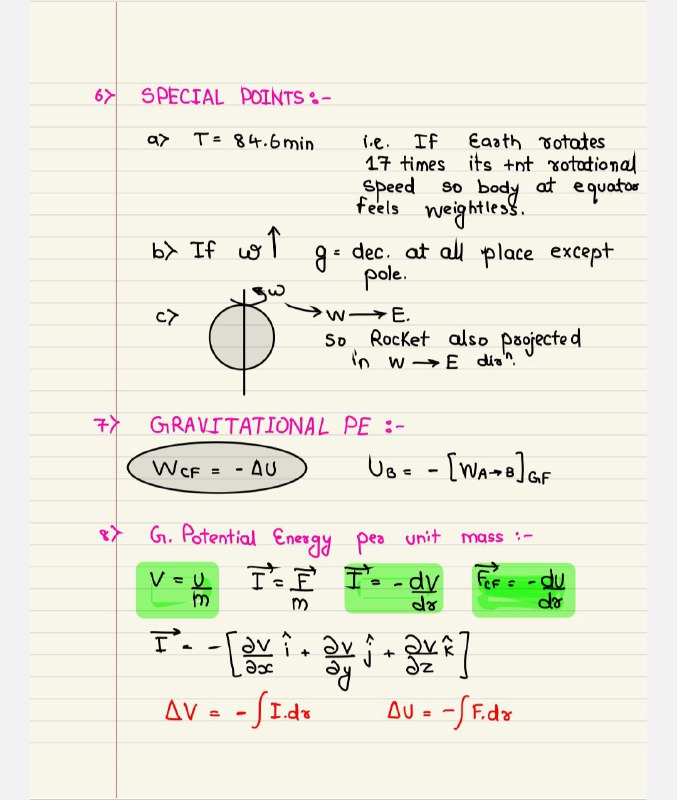 6> SPECIAL POINTS :-
a> T = 84.6min i.e. If Earth rotates
17 times its +nt rotational
speed so body at equator
feels weightless.
b> If ω↑ g = dec. at all place except
pole.
c> ω → W → E.
So Rocket also projected
in W → E dirⁿ.
7> GRAVITATIONAL PE :-
W_CF = - ΔU U_B = - [W_A→B]_GF
8> G. Potential Energy per unit mass :-
V = U/m I⃗ = F⃗/m I⃗ = - dV/dr F⃗_CF = - dU/dr
I⃗ = - [∂V/∂x î + ∂V/∂y ĵ + ∂V/∂z k̂]
ΔV = - ∫I.dr ΔU = - ∫F.dr